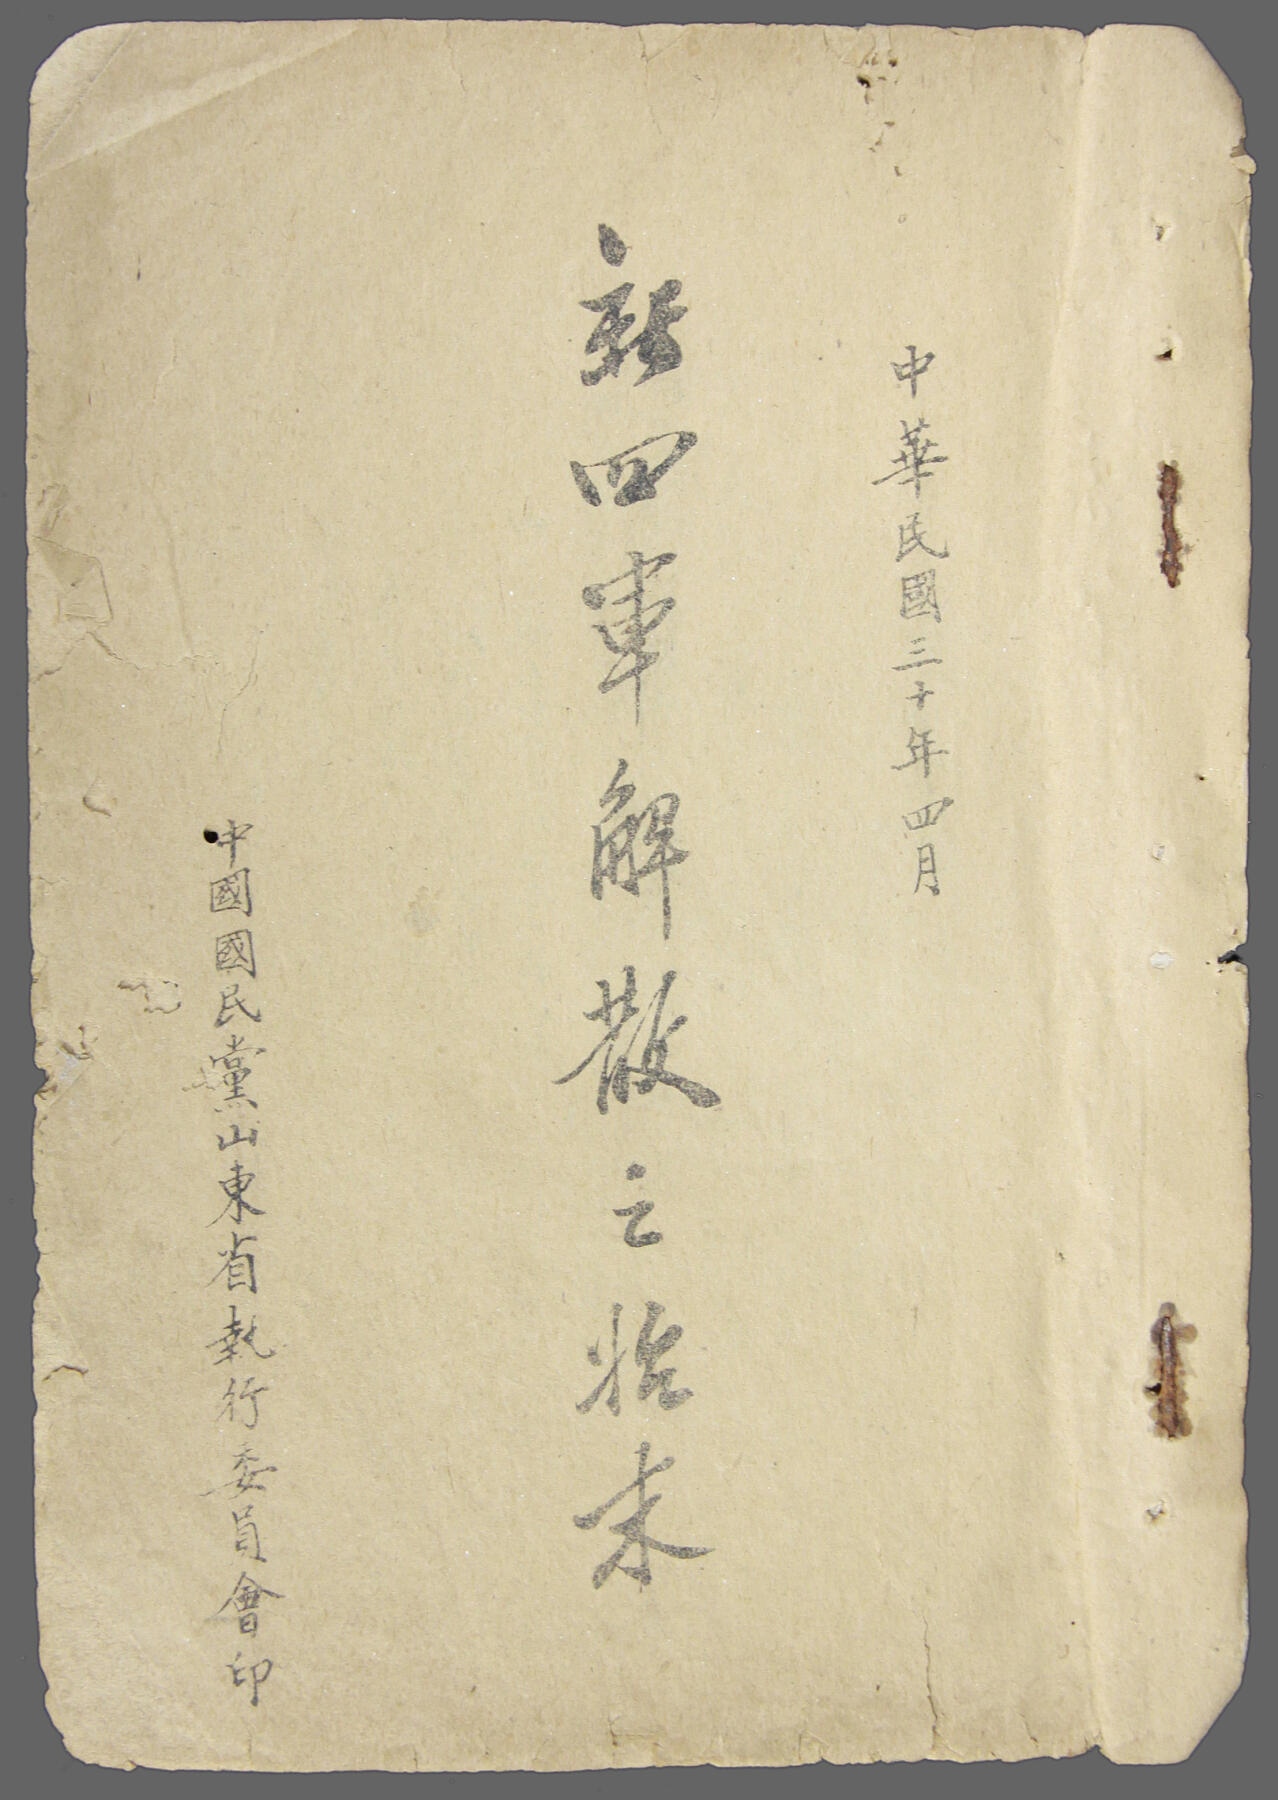 中華民國三十年四月
新四軍解散之始末
中國國民黨山東省執行委員會印